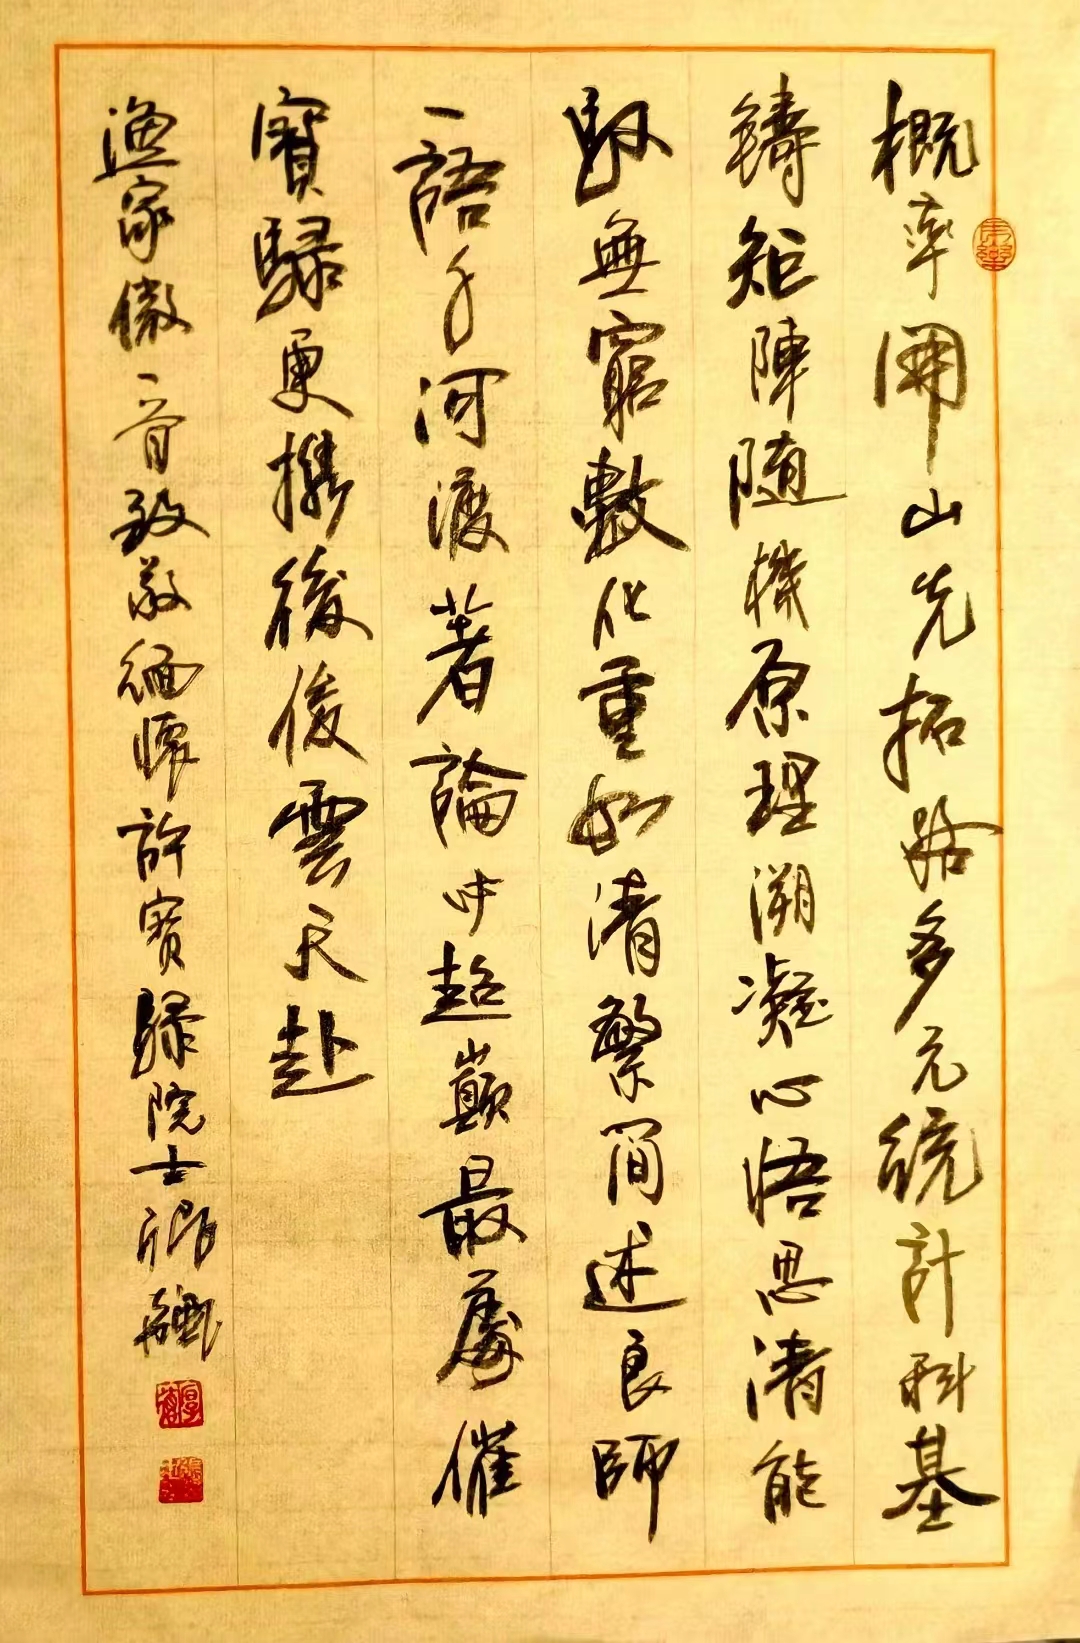 概率開山先拓路多元統計科基
鑄矩陣隨機原理溯凝心悟思濤能
馭無窮數化重如清繁簡述良師
一語千河渡著論叶超巔最處催
寶騄更攜後俊雲天赴
漁家傲一音致敬緬懷許寶騄院士